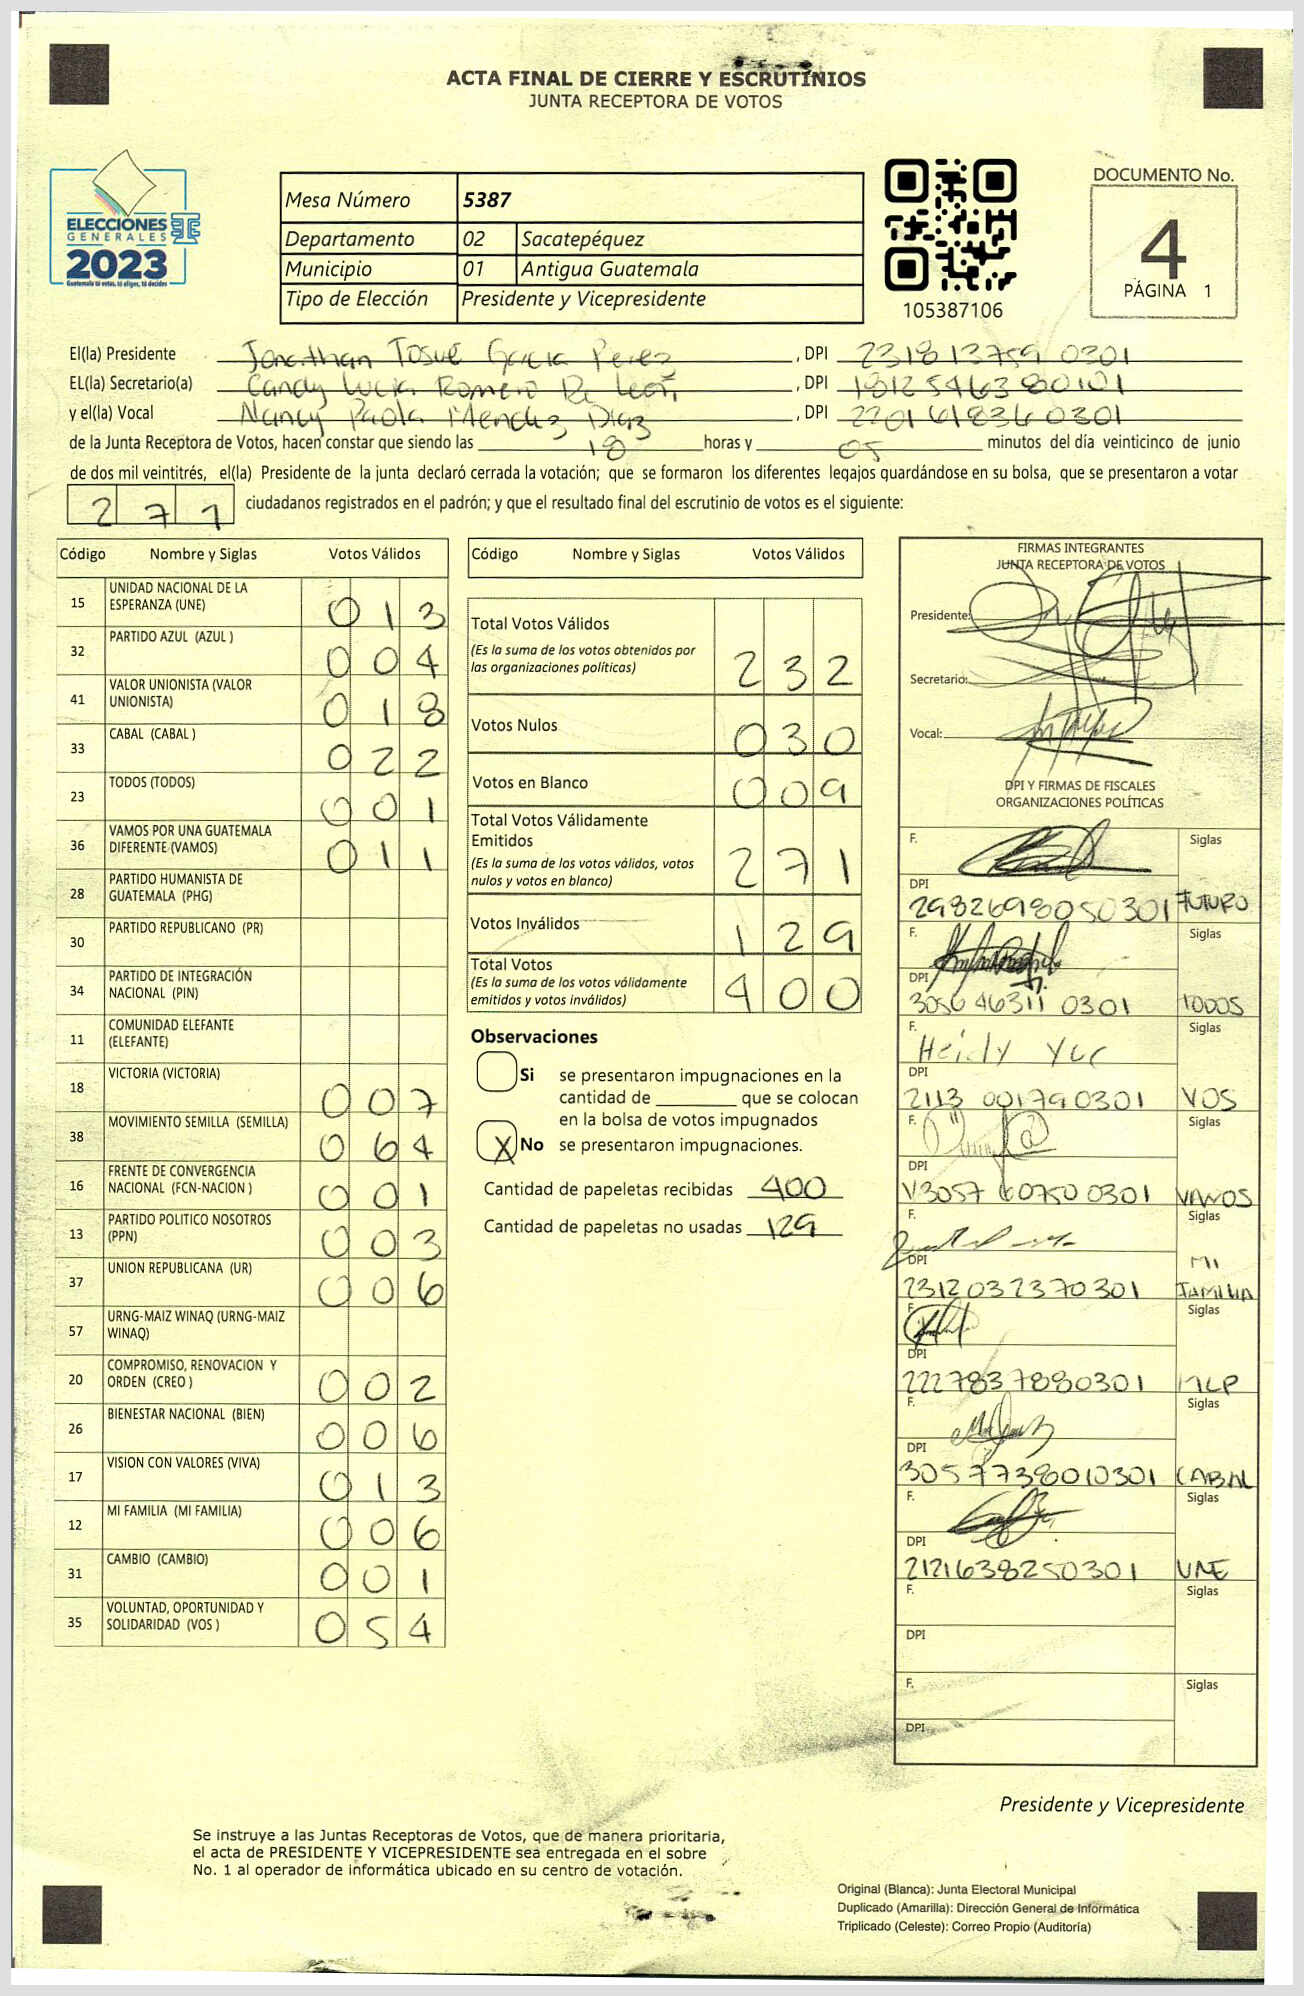 ACTA FINAL DE CIERRE Y ESCRUTINIOS
JUNTA RECEPTORA DE VOTOS
ELECCIONES
GENERALES
2023
Guatemala tú votas, tú eliges, tú decides
Mesa Número 5387
Departamento 02 Sacatepéquez
Municipio 01 Antigua Guatemala
Tipo de Elección Presidente y Vicepresidente
105387106
DOCUMENTO No.
4
PÁGINA 1
El(la) Presidente Jonathan Josué Garcia Perez, DPI 231813759 0301
EL(la) Secretario(a) Candy Lucia Romero De León, DPI 1812546380101
y el(la) Vocal Nancy Paola Mendez Diaz, DPI 2201618360301
de la Junta Receptora de Votos, hacen constar que siendo las 18 horas y 05 minutos del día veinticinco de junio
de dos mil veintitrés, el(la) Presidente de la junta declaró cerrada la votación; que se formaron los diferentes legajos guardándose en su bolsa, que se presentaron a votar
271 ciudadanos registrados en el padrón; y que el resultado final del escrutinio de votos es el siguiente:
Código Nombre y Siglas Votos Válidos
15 UNIDAD NACIONAL DE LA ESPERANZA (UNE) 013
32 PARTIDO AZUL (AZUL ) 004
41 VALOR UNIONISTA (VALOR UNIONISTA) 018
33 CABAL (CABAL ) 022
23 TODOS (TODOS) 001
36 VAMOS POR UNA GUATEMALA DIFERENTE (VAMOS) 011
28 PARTIDO HUMANISTA DE GUATEMALA (PHG)
30 PARTIDO REPUBLICANO (PR)
34 PARTIDO DE INTEGRACIÓN NACIONAL (PIN)
11 COMUNIDAD ELEFANTE (ELEFANTE)
18 VICTORIA (VICTORIA) 007
38 MOVIMIENTO SEMILLA (SEMILLA) 064
16 FRENTE DE CONVERGENCIA NACIONAL (FCN-NACION ) 001
13 PARTIDO POLITICO NOSOTROS (PPN) 003
37 UNION REPUBLICANA (UR) 006
57 URNG-MAIZ WINAQ (URNG-MAIZ WINAQ)
20 COMPROMISO, RENOVACION Y ORDEN (CREO ) 002
26 BIENESTAR NACIONAL (BIEN) 006
17 VISION CON VALORES (VIVA) 013
12 MI FAMILIA (MI FAMILIA) 006
31 CAMBIO (CAMBIO) 001
35 VOLUNTAD, OPORTUNIDAD Y SOLIDARIDAD (VOS ) 054
Código Nombre y Siglas Votos Válidos
Total Votos Válidos 232
(Es la suma de los votos obtenidos por
las organizaciones políticas)
Votos Nulos 030
Votos en Blanco 009
Total Votos Válidamente
Emitidos 271
(Es la suma de los votos válidos, votos
nulos y votos en blanco)
Votos Inválidos 129
Total Votos 400
(Es la suma de los votos válidamente
emitidos y votos inválidos)
Observaciones
Si se presentaron impugnaciones en la
cantidad de ________ que se colocan
en la bolsa de votos impugnados
X No se presentaron impugnaciones.
Cantidad de papeletas recibidas 400
Cantidad de papeletas no usadas 129
FIRMAS INTEGRANTES
JUNTA RECEPTORA DE VOTOS
Presidente:
Secretario:
Vocal:
DPI Y FIRMAS DE FISCALES
ORGANIZACIONES POLÍTICAS
F. Siglas
DPI
2982698050301 FUTURO
F. Siglas
DPI
3056 46311 0301 TODOS
F. Heidy Yuc Siglas
DPI
2113 001790301 VOS
F. Siglas
DPI
V3057 60750 0301 VAMOS
F. Siglas
DPI
2312032370301 MI FAMILIA
F. Siglas
DPI
2227837880301 MLP
F. Siglas
DPI
3057738010301 CABAL
F. Siglas
DPI
2121638250301 UNE
F. Siglas
DPI
F. Siglas
DPI
Presidente y Vicepresidente
Se instruye a las Juntas Receptoras de Votos, que de manera prioritaria,
el acta de PRESIDENTE Y VICEPRESIDENTE sea entregada en el sobre
No. 1 al operador de informática ubicado en su centro de votación.
Original (Blanca): Junta Electoral Municipal
Duplicado (Amarilla): Dirección General de Informática
Triplicado (Celeste): Correo Propio (Auditoría)